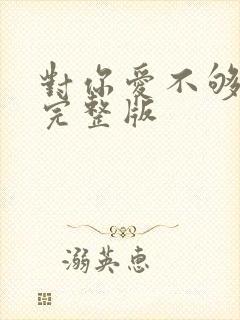 對你愛不够
完整版
溺英惠